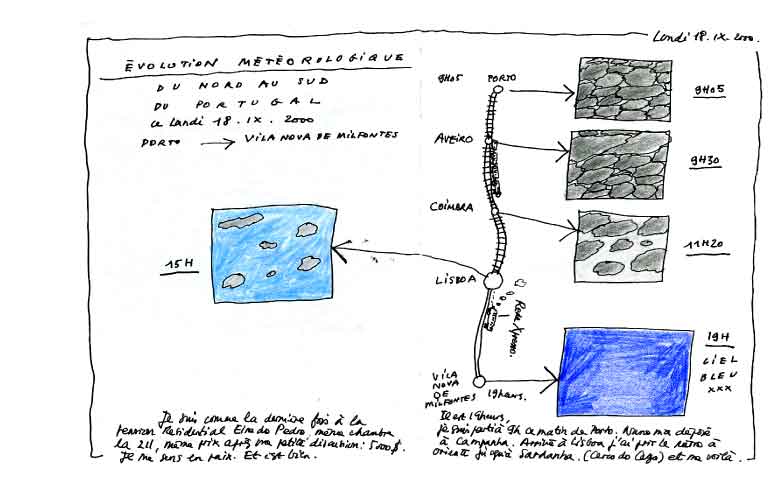 Lundi 18.IX.2000.
ÉVOLUTION MÉTÉOROLOGIQUE
DU NORD AU SUD
DU PORTUGAL
ce Lundi 18.IX.2000
PORTO → VILA NOVA DE MILFONTES
15H
9H05 PORTO
9H05
AVEIRO
9H30
COÏMBRA
11H20
LISBOA
Rede Xpresso.
19H
CIEL
BLEU
xxx
VILA
NOVA
DE
MILFONTES
19heures.
Je suis comme la dernière fois à la
pension Residential Eira do Pedro même chambre
la 211, même prix après ma petite discution: 5000$.
Je me sens en paix. Et c'est bien.
Il est 19heures,
je suis parti à 9h ce matin de Porto. Nuno m'a déposé
à Campanha. Arrivé à Lisboa j'ai pris le métro à
oriente jusqu'à Saldanha. (Cerco do Cego) et me voilà.